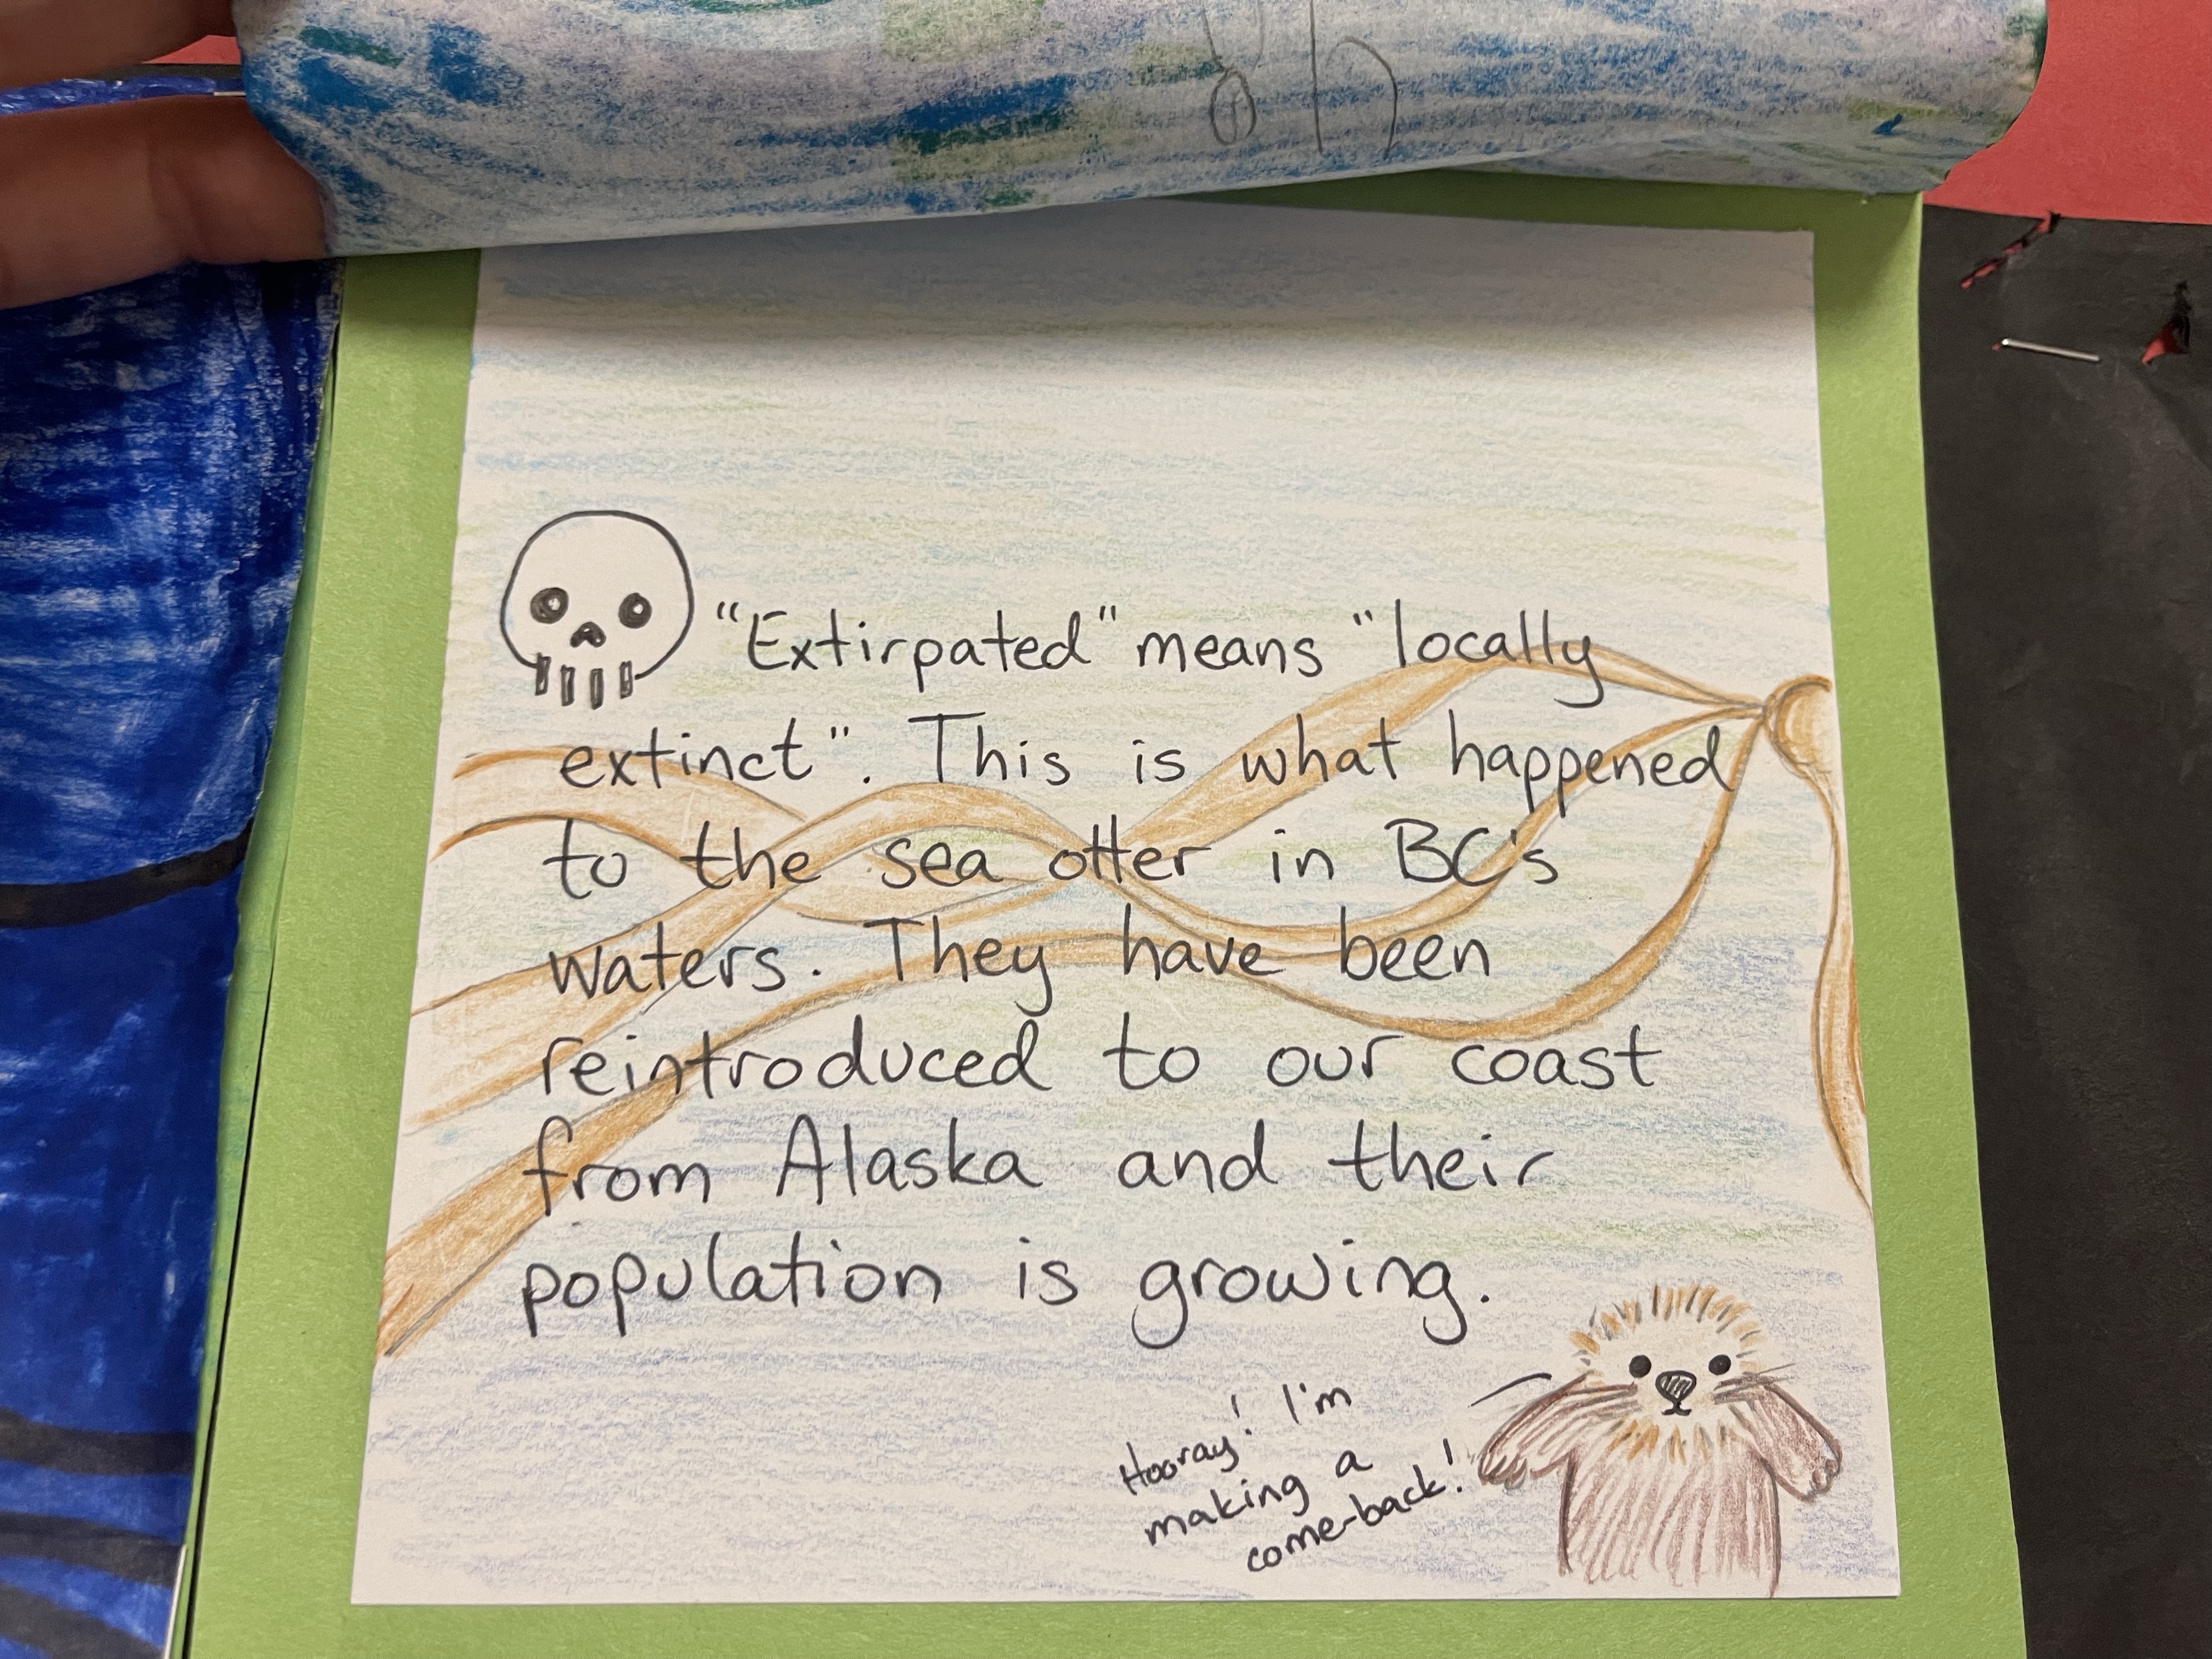 "Extirpated" means "locally
extinct". This is what happened
to the sea otter in BC's
waters. They have been
reintroduced to our coast
from Alaska and their
population is growing.
Hooray! I'm
making a
come-back!